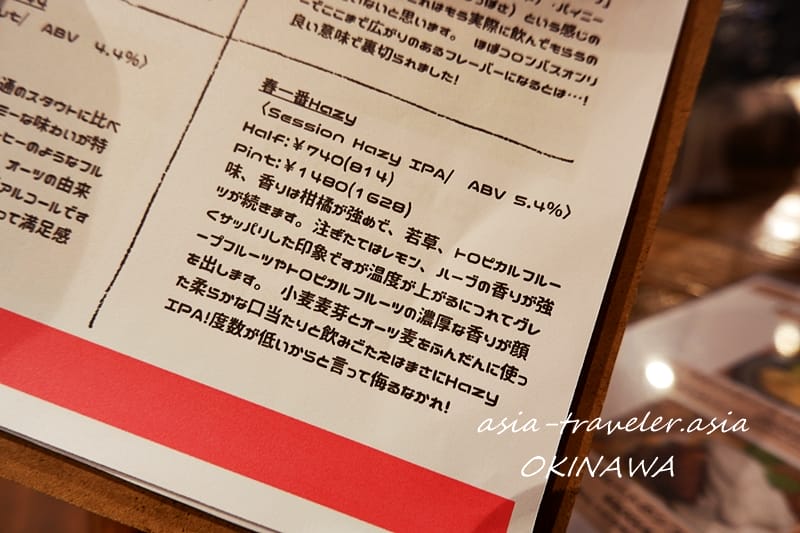 lt/ ABV 4.4%〉
通のスタウトに比べ
ミーな味わいが特
ーヒーのようなフル
オーツの由来
アルコールです
って満足感
という感じの
いないと思います。これはもう実際に飲んでもらうの
ほぼコロンバスオンリ
ーでここまで広がりのあるフレーバーになるとは…!
良い意味で裏切られました!
春一番Hazy
〈Session Hazy IPA/ ABV 5.4%〉
Half:¥740(814)
Pint:¥1480(1628)
味、香りは柑橘が強めで、若草、トロピカルフルー
ツが続きます。注ぎたてはレモン、ハーブの香りが強
くサッパリした印象ですが温度が上がるにつれてグレ
ープフルーツやトロピカルフルーツの濃厚な香りが顔
を出します。 小麦麦芽とオーツ麦をふんだんに使っ
た柔らかな口当たりと飲みごたえはまさにHazy
IPA!度数が低いからと言って侮るなかれ!
asia-traveler.asia
OKINAWA